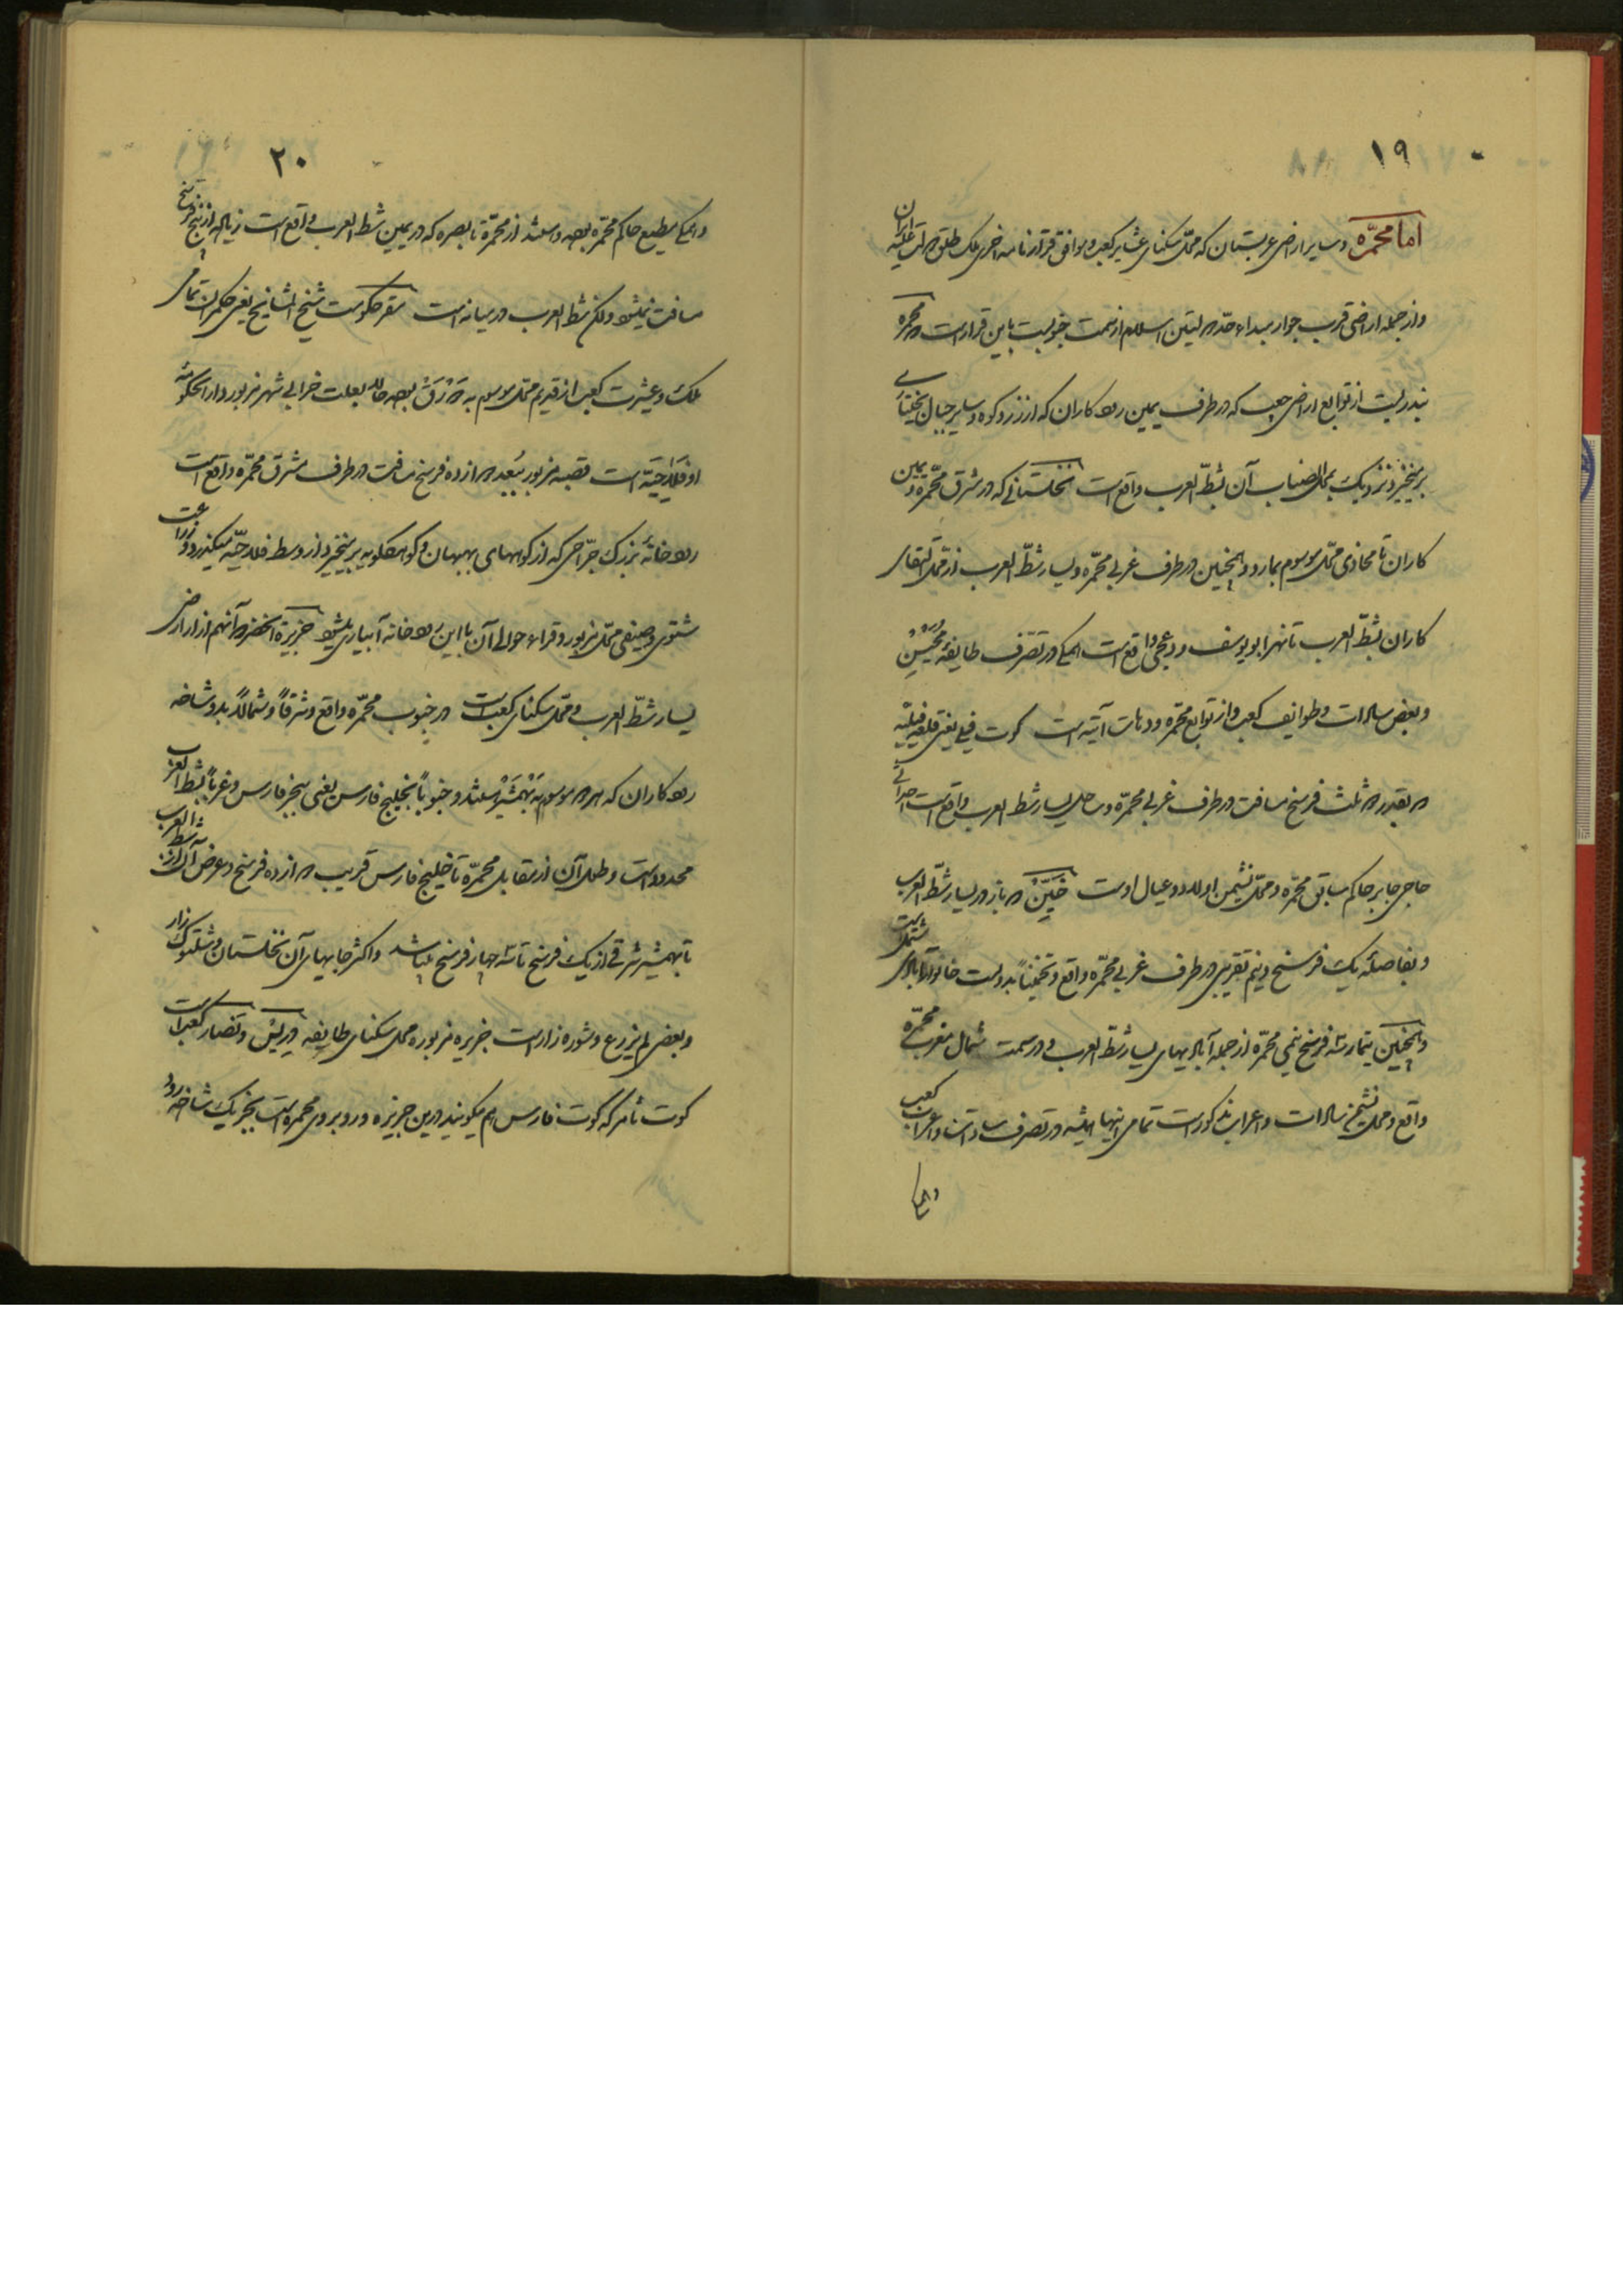 ۱۹
اما محمّره و سایر اراضی عربستان که محلّ سکنای عشایر کعب و موافق قرارنامه اخری ملک طلق دولت علیّه ایران
و از جمله اراضی قرب جوار مبداء حدّ دولتین اسلام از سمت جنوبست باین قرار است محمره
بندریست از توابع اراضی کعب که در طرف یمین رود کاران که از زردکوه و سایر جبال بختیاری
برمیخیزد نزدیک بمحل انصباب آن بشطّ العرب واقع است نخلستانی که در شرق محمّره و یمین
کاران تا محاذی محلّ موسوم بمارد و همچنین در طرف غربی محمّره و یسار شطّ العرب از محل التقای
کاران بشطّ العرب تا نهر ابو یوسف و دعیجی واقع است همگی در تصرّف طایفهٔ مُحَیْسِنْ
و بعض سادات و طوایف کعب و از توابع محمّره و دهات آتیه است کوت فیلی یعنی قلعه فیلیّه
بقدر دو ثلث فرسخ مسافت در طرف غربی محمّره و ساحل یسار شط العرب واقع است احداثی
حاجی جابر حاکم سابق محمّره و محلّ نشیمن اولاد و عیال اوست خَیِّنْ باز در یسار شطّ العرب
و بفاصلهٔ یک فرسخ و نیم تقریبی در طرف غربی محمّره واقع و تخمیناً بدویست خانوار آبادی مشتمل است
و همچنین بتمار سه فرسخ نیمی محمّره از جمله آبادیهای یسار شطّ العرب و در سمت شمال مغرب محمّره
واقع و محل نشیمن سادات و اعراب مذکور است تمامی اینها همیشه در تصرف سادات و اعراب کعب
و همگی
۲۰
و همگی مطیع حاکم محمّره بوده و هستند از محمّره تا بصره که در یمین شط العرب واقع است زیاده از پنج فرسخ
مسافت نمیشود ولکن شط العرب در میانه است مقر حکومت شیخ المشایخ یعنی حکمران تمامی
ملک و عشیرت کعب از قدیم محلّ موسوم به دَوْرَقْ بوده حالا بعلت خرابی شهر مزبور دار الحکومه
او فَلاحیّه است قصبه مزبور ببُعد دوازده فرسخ مسافت در طرف مشرق محمّره واقع است
رودخانهٔ بزرگ جرّاحی که از کوههای بهبهان و کوه کیلویه برمیخیزد از وسط فلاحیّه میگذرد و زراعت
شتوی و صیفی محلّ مزبور و قراء حوالی آن با این رودخانه آبیاری میشود جزیرة الخضر و آنهم از اراضی
یسار شطّ العرب و محلّ سکنای کعب است در جنوب محمّره واقع و شرقاً و شمالاً بدو شاخه
رود کاران که هر دو موسوم به بَهْمَشیر هستند و جنوباً بخلیج فارس یعنی ببحر فارس و غرباً بشط العرب
محدود است و طول آن از مقابل محمّره تا خلیج فارس قریب دوازده فرسخ و عرض آن از شط العرب
تا بهمشیر شرقی از یک فرسخ تا سه چهار فرسخ میباشد و اکثر جایهای آن نخلستان و شلتوک زار
و بعض لم یزرع و شوره زار است جزیره مزبوره محل سکنای طایفه دریس و نصار کعب است
کوت تامر که کوت فارس هم میگویند در این جزیره و روبروی محمره است بجز یک شاخه رود